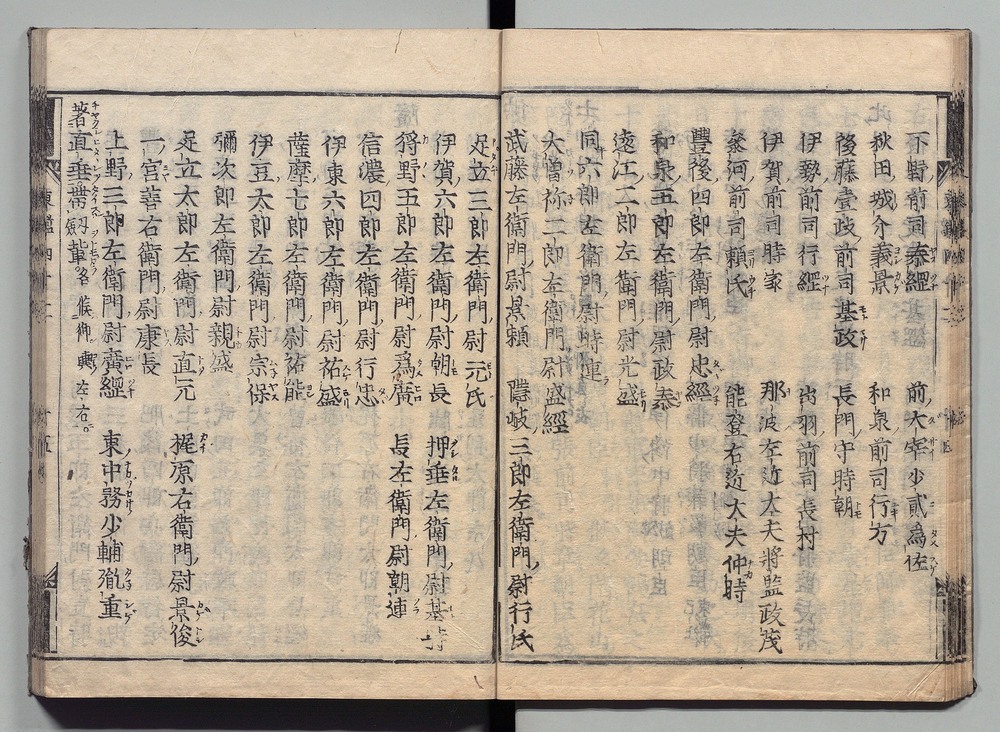 下野前司泰經　前大宰少貳為佐
秋田城介義景　和泉前司行方
後藤壹岐前司基政　長門守時朝
伊勢前司行經　出羽前司長村
伊賀前司時家　那波左近大夫將監政茂
參河前司頼氏　能登右近大夫仲時
豐後四郎左衛門尉忠經
和泉五郎左衛門尉政泰
遠江二郎左衛門尉光盛
同六郎左衛門尉時連
大曾祢二郎左衛門尉盛經
武藤左衛門尉景頼　隱岐三郎左衛門尉行氏
足立三郎左衛門尉元氏
伊賀六郎左衛門尉朝長　押垂左衛門尉基時
狩野五郎左衛門尉為廣　長左衛門尉朝連
信濃四郎左衛門尉行忠
伊東六郎左衛門尉祐盛
薩摩七郎左衛門尉祐能
伊豆太郎左衛門尉宗保
彌次郎左衛門尉親盛
足立太郎左衛門尉直元　梶原右衛門尉景俊
一宮善右衛門尉康長
上野三郎左衛門尉廣經　東中務少輔胤重
著直垂帶劔輩各候御輿左右